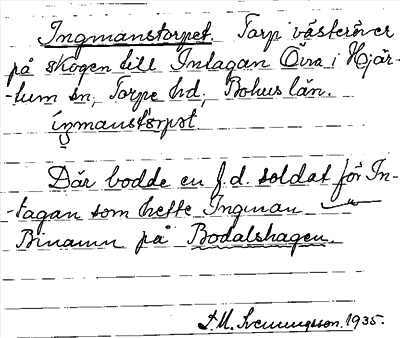 Ingmanstorpet. Torp västeröver
på skogen till Intagan Övra i Hjär-
-tum sn, Torpe hd, Bohus län.
ingmanstorpet
Där bodde en f.d. soldat för In-
-tagan som hette Ingman
Binamn på Bodalshagen.
Svenningsson. 1935.